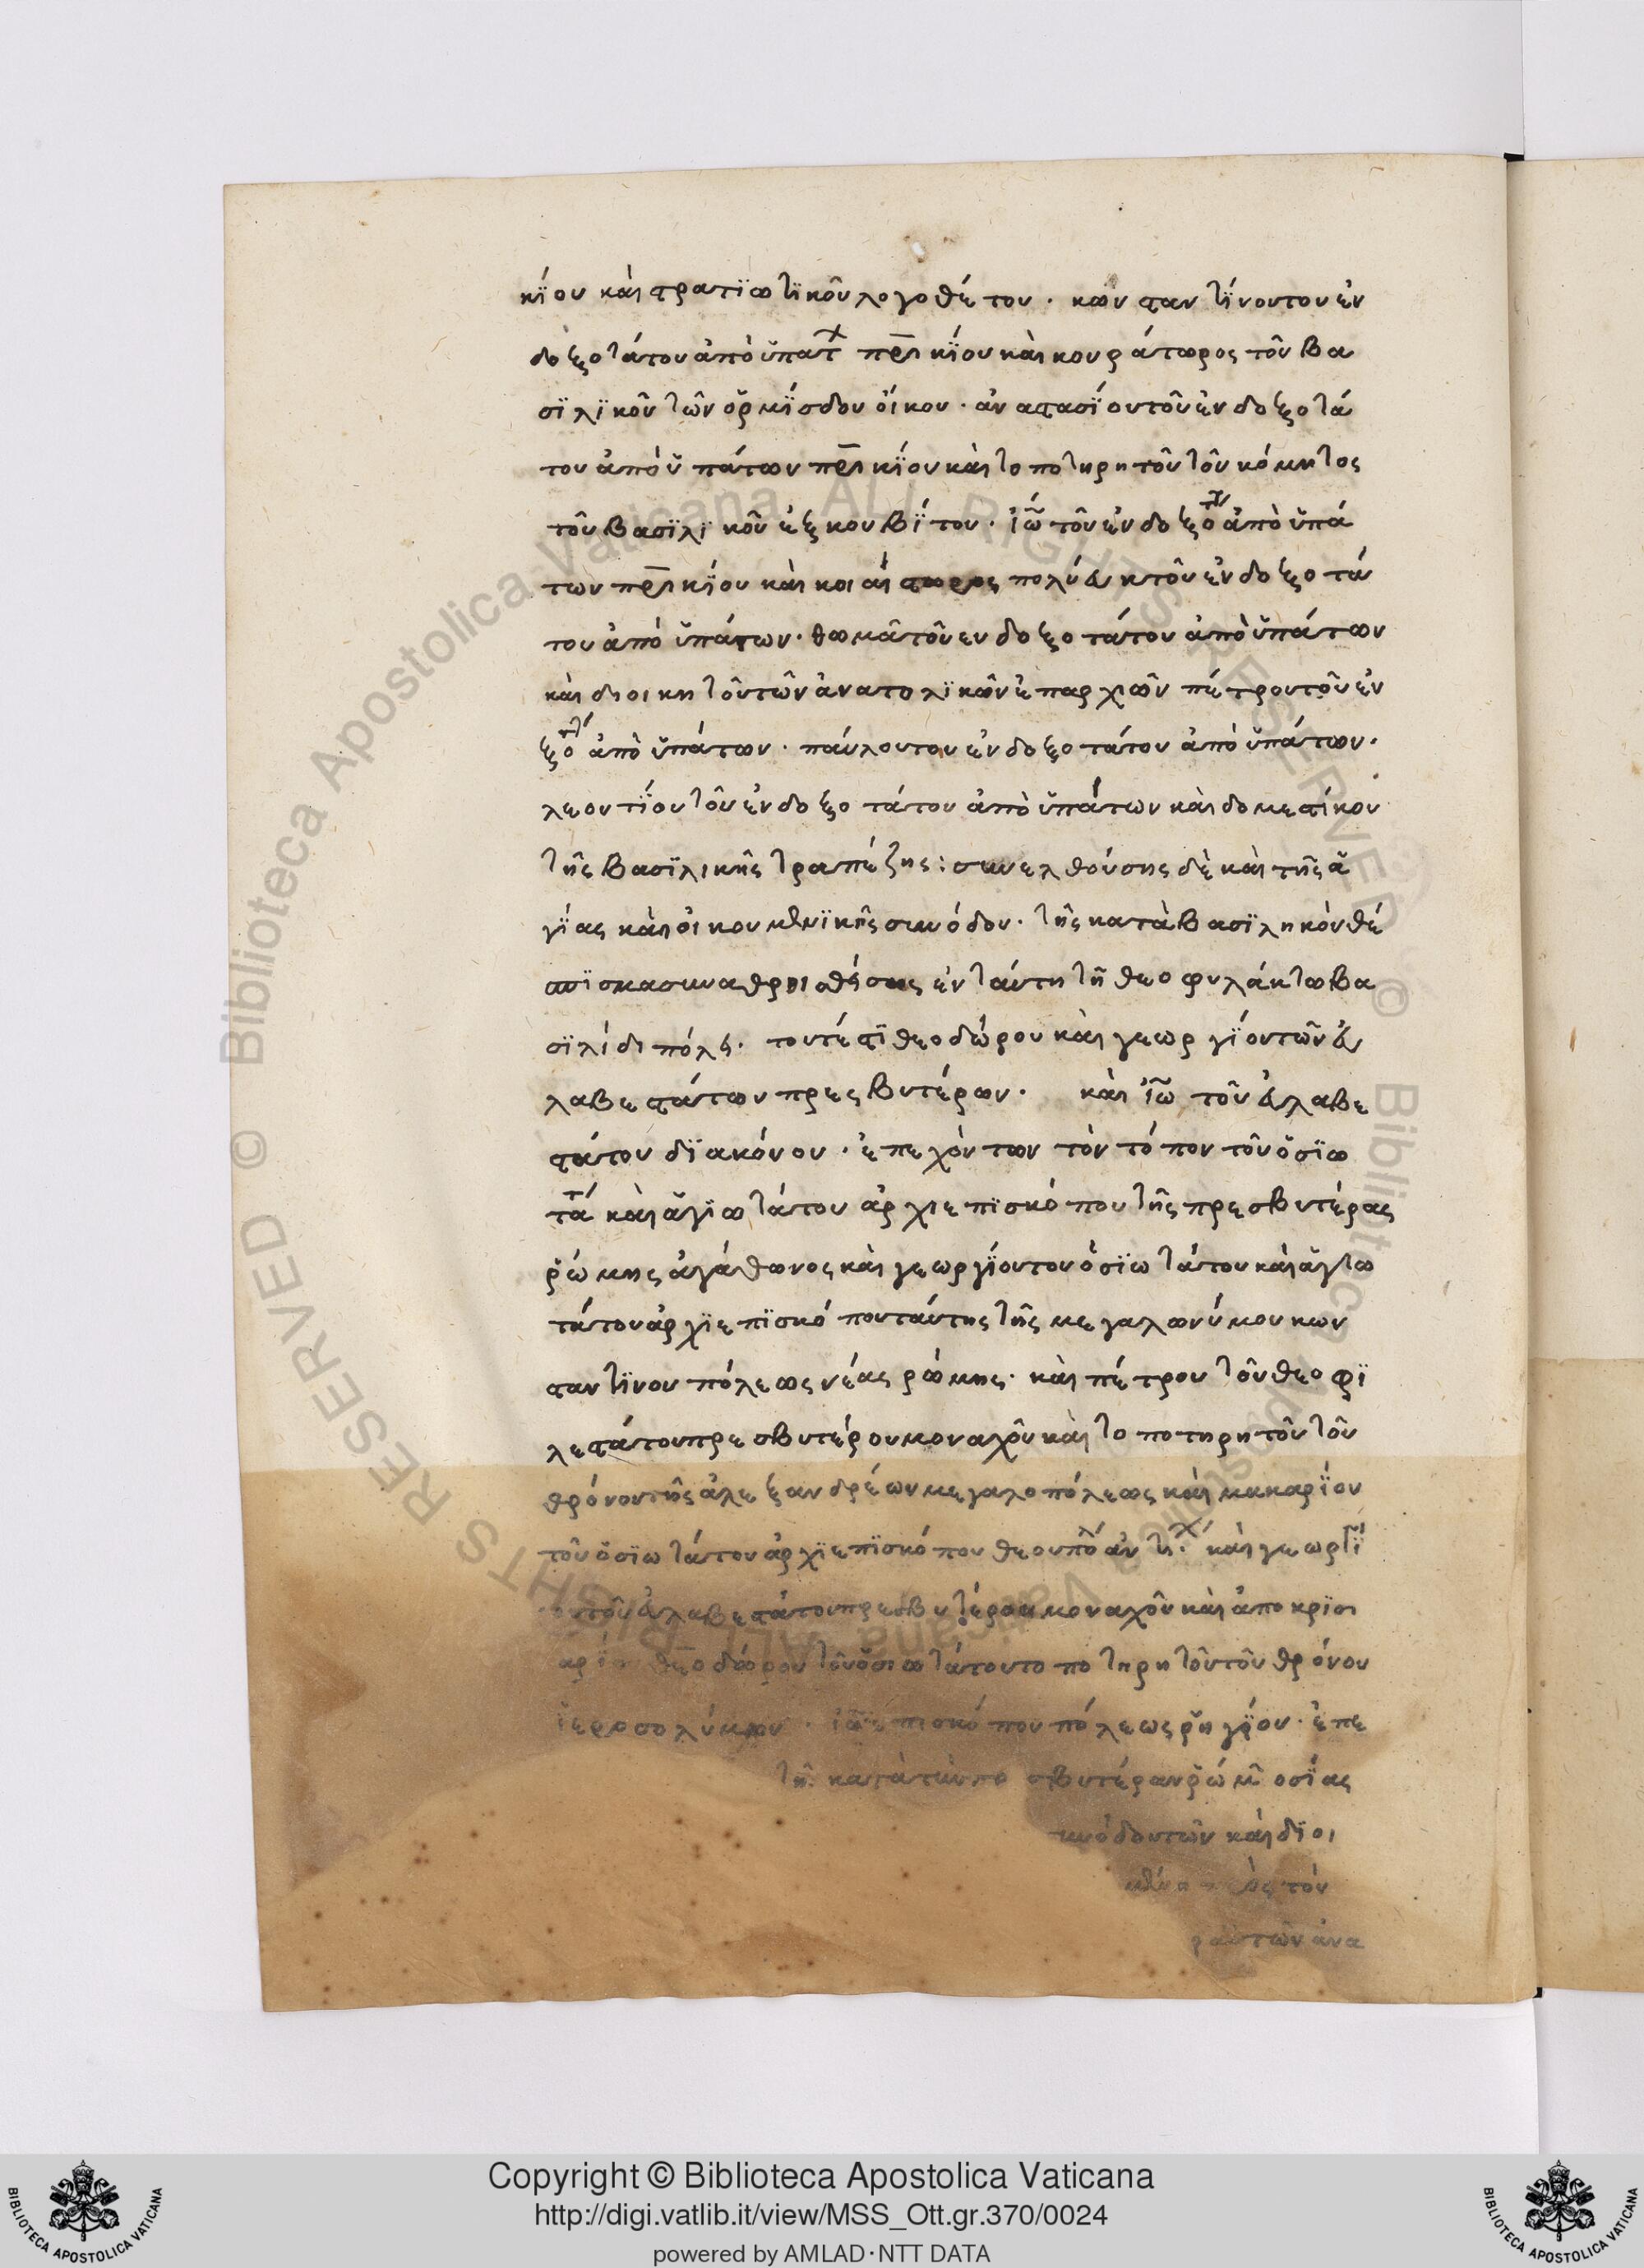 κΐου καὶ στρατϊωτϊκοῦ λογοθέτου. κωνσταντΐνου τοῦ ἐν
δοξοτάτου ἀπὸ ὑπατ πρικΐου καὶ κουράτωρος τοῦ βα
σϊλϊκοῦ τῶν ὁρμΐσδου οἴκου. ἀναστασΐου τοῦ ἐνδοξοτά
του ἀπὸ ὑπάτων πρικΐου καὶ τοποτηρητοῦ τοῦ κόμητος
τοῦ βασϊλϊκοῦ ἐξκουβΐτου. ἰῶ τοῦ ἐνδοξοτ ἀπὸ ὑπά
των πρικΐου καὶ κοιαίστωρος πολυεύκτου ἐνδοξοτά
του ἀπὸ ὑπάτων. θωμᾶ τοῦ ενδοξοτάτου ἀπὸ ὑπάτων
καὶ διοικητοῦ τῶν ἀνατολϊκῶν ἐπαρχιῶν πέτρου τοῦ ἐν
ξοτ ἀπὸ ὑπάτων. παύλου του ἐνδοξοτάτου ἀπὸ ὑπάτων.
λεοντΐου τοῦ ἐνδοξοτάτου ἀπὸ ὑπάτων καὶ δομεστίκου
τῆς βασϊλικῆς τραπέζης: συνελθούσης δὲ καὶ τῆς ἁ
γΐας καὶ οἰκουμενϊκῆς συνόδου. τῆς κατὰ βασϊληκὸν θέ
σπϊσμα συναθροισθείσης ἐν ταύτη τῆ θεοφυλάκτω βα
σϊλίδι πόλει. τουτέστϊ θεοδώρου καὶ γεωργΐου τῶν εὐ
λαβεστάτων πρεςβυτέρων. καὶ ἰῶ τοῦ εὐλαβε
στάτου δϊακόνου. ἐπεχόντων τὸν τόπον τοῦ ὁσϊω
τα καὶ ἁγϊωτάτου ἀρχιεπϊσκόπου τῆς πρεσβυτέρας
ῥώμης ἀγάθωνος καὶ γεωργΐου του ὁσϊωτάτου καὶ ἁγϊω
τάτου ἀρχϊεπϊσκόπου ταύτης τῆς μεγαλωνύμου κων
σταντϊνου πόλεως νέας ρώμης. καὶ πέτρου τοῦ θεοφϊ
λεστάτου πρεσβυτέρου μοναχοῦ καὶ τοποτηρητοῦ τοῦ
θρόνου τῆς ἀλεξανδρέων μεγαλοπόλεως καὶ μακαρΐου
τοῦ ὁσϊωτάτου ἀρχϊεπϊσκόπου θεουπολ ἀντιχ. καὶ γεωργΐ
ου τοῦ εὐλαβεστάτου πρεσβυτέρου μοναχοῦ καὶ ἀποκρϊσι
αρίου θεοδώρου τοῦ ὁσιωτάτου τοποτηρητοῦ τοῦ θρόνου
ἱεροσολύμων. ἰῶ ἐπισκόπου πόλεως ῥηγΐου. ἐπε
τη. κατὰ τὴν πρεσβυτέραν ῥώμ οσΐας
υνόδου τῶν καὶ δϊοι
τόν
αὐτῶν ἀνα